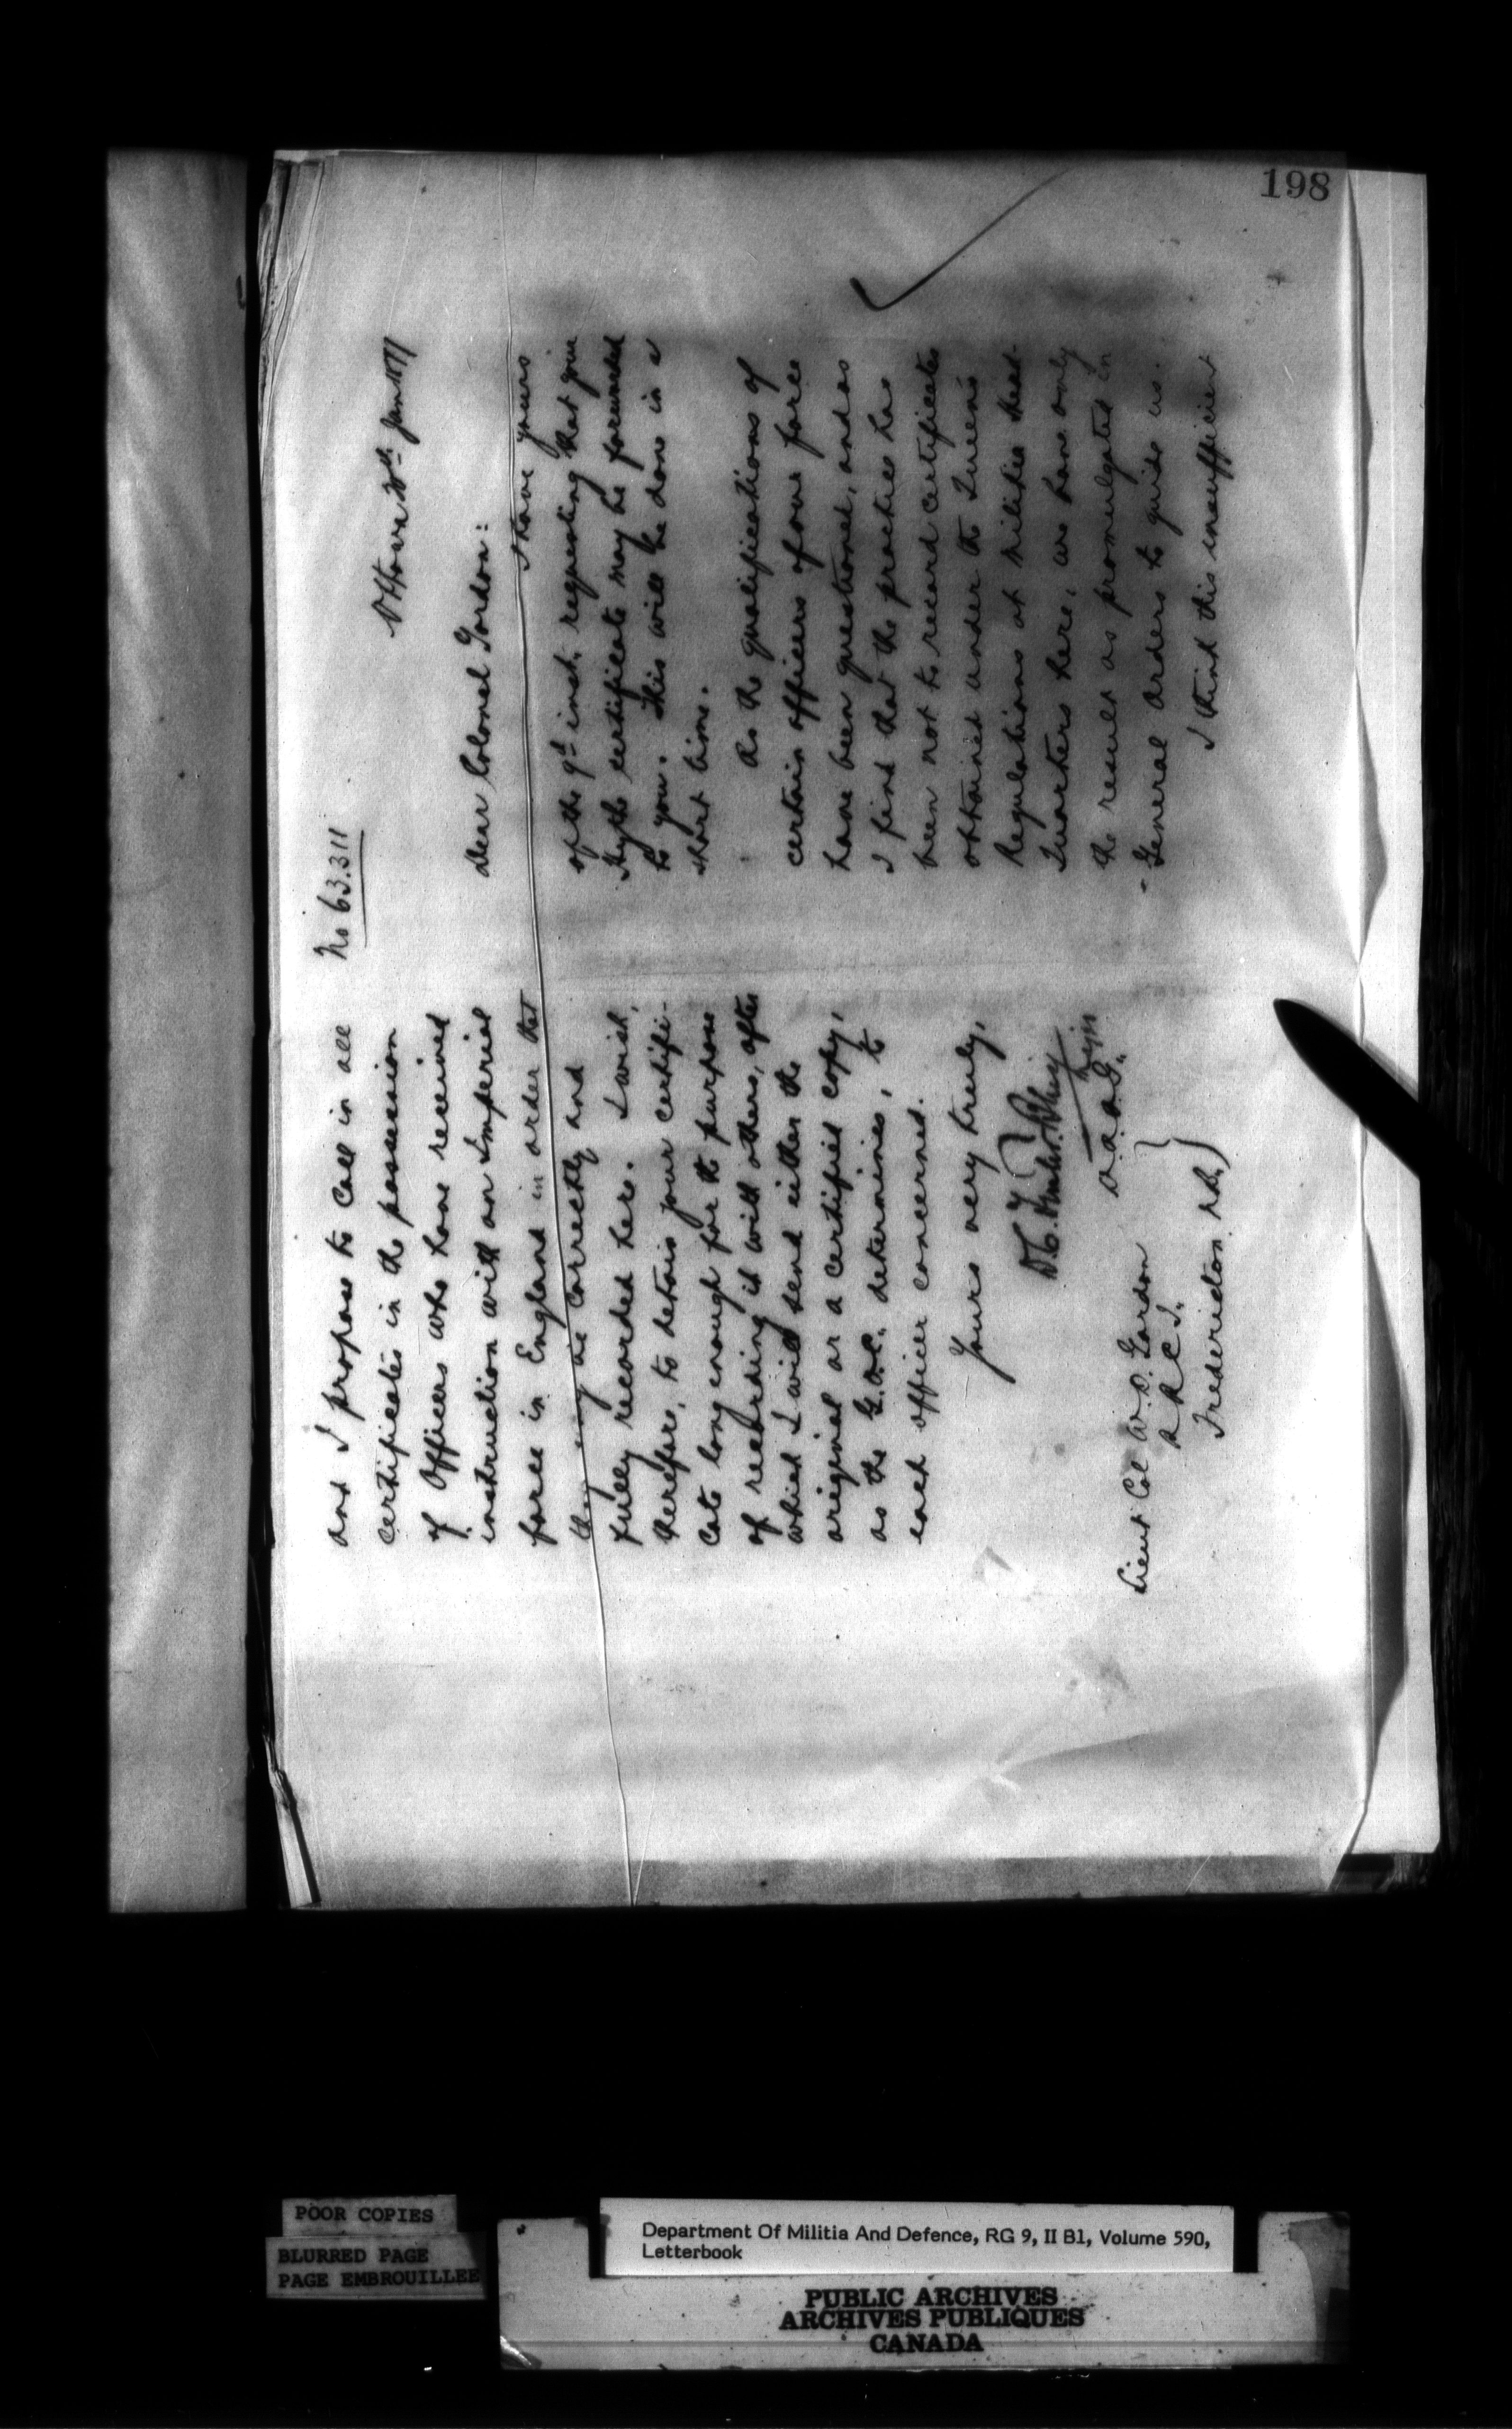 198
No 63.311
Ottawa Jan
Dear Colonel Gordon:
I have yours
of the 9th inst. requesting that your
Hythe certificate may be forwarded
to you. This will be done in a
short time.
As the qualifications of
certain officers of our force
have been questioned, and as
I find that the practice has
been not to record certificates
obtained under the Queen's
Regulations at Militia Head-
Quarters here, we have only
the result as promulgated in
General Orders to guide us.
I think this insufficient
and I propose to call in all
certificates in the possession
of Officers who have received
instruction with an Imperial
force in England in order that
they may be correctly and
fully recorded here. I wish,
therefore, to detain your certifi-
cate long enough for the purpose
of recording it with others, after
which I will send either the
original or a certified copy,
as the G.O.C. determines, to
each officer concerned.
Yours very truly,
D.A.A.G.
Lieut Col W.D. Gordon
R.R.C.I.
Fredericton N.B.
POOR COPIES
BLURRED PAGE
PAGE EMBROUILLEE
Department Of Militia And Defence, RG 9, II B1, Volume 590,
Letterbook
PUBLIC ARCHIVES
ARCHIVES PUBLIQUES
CANADA